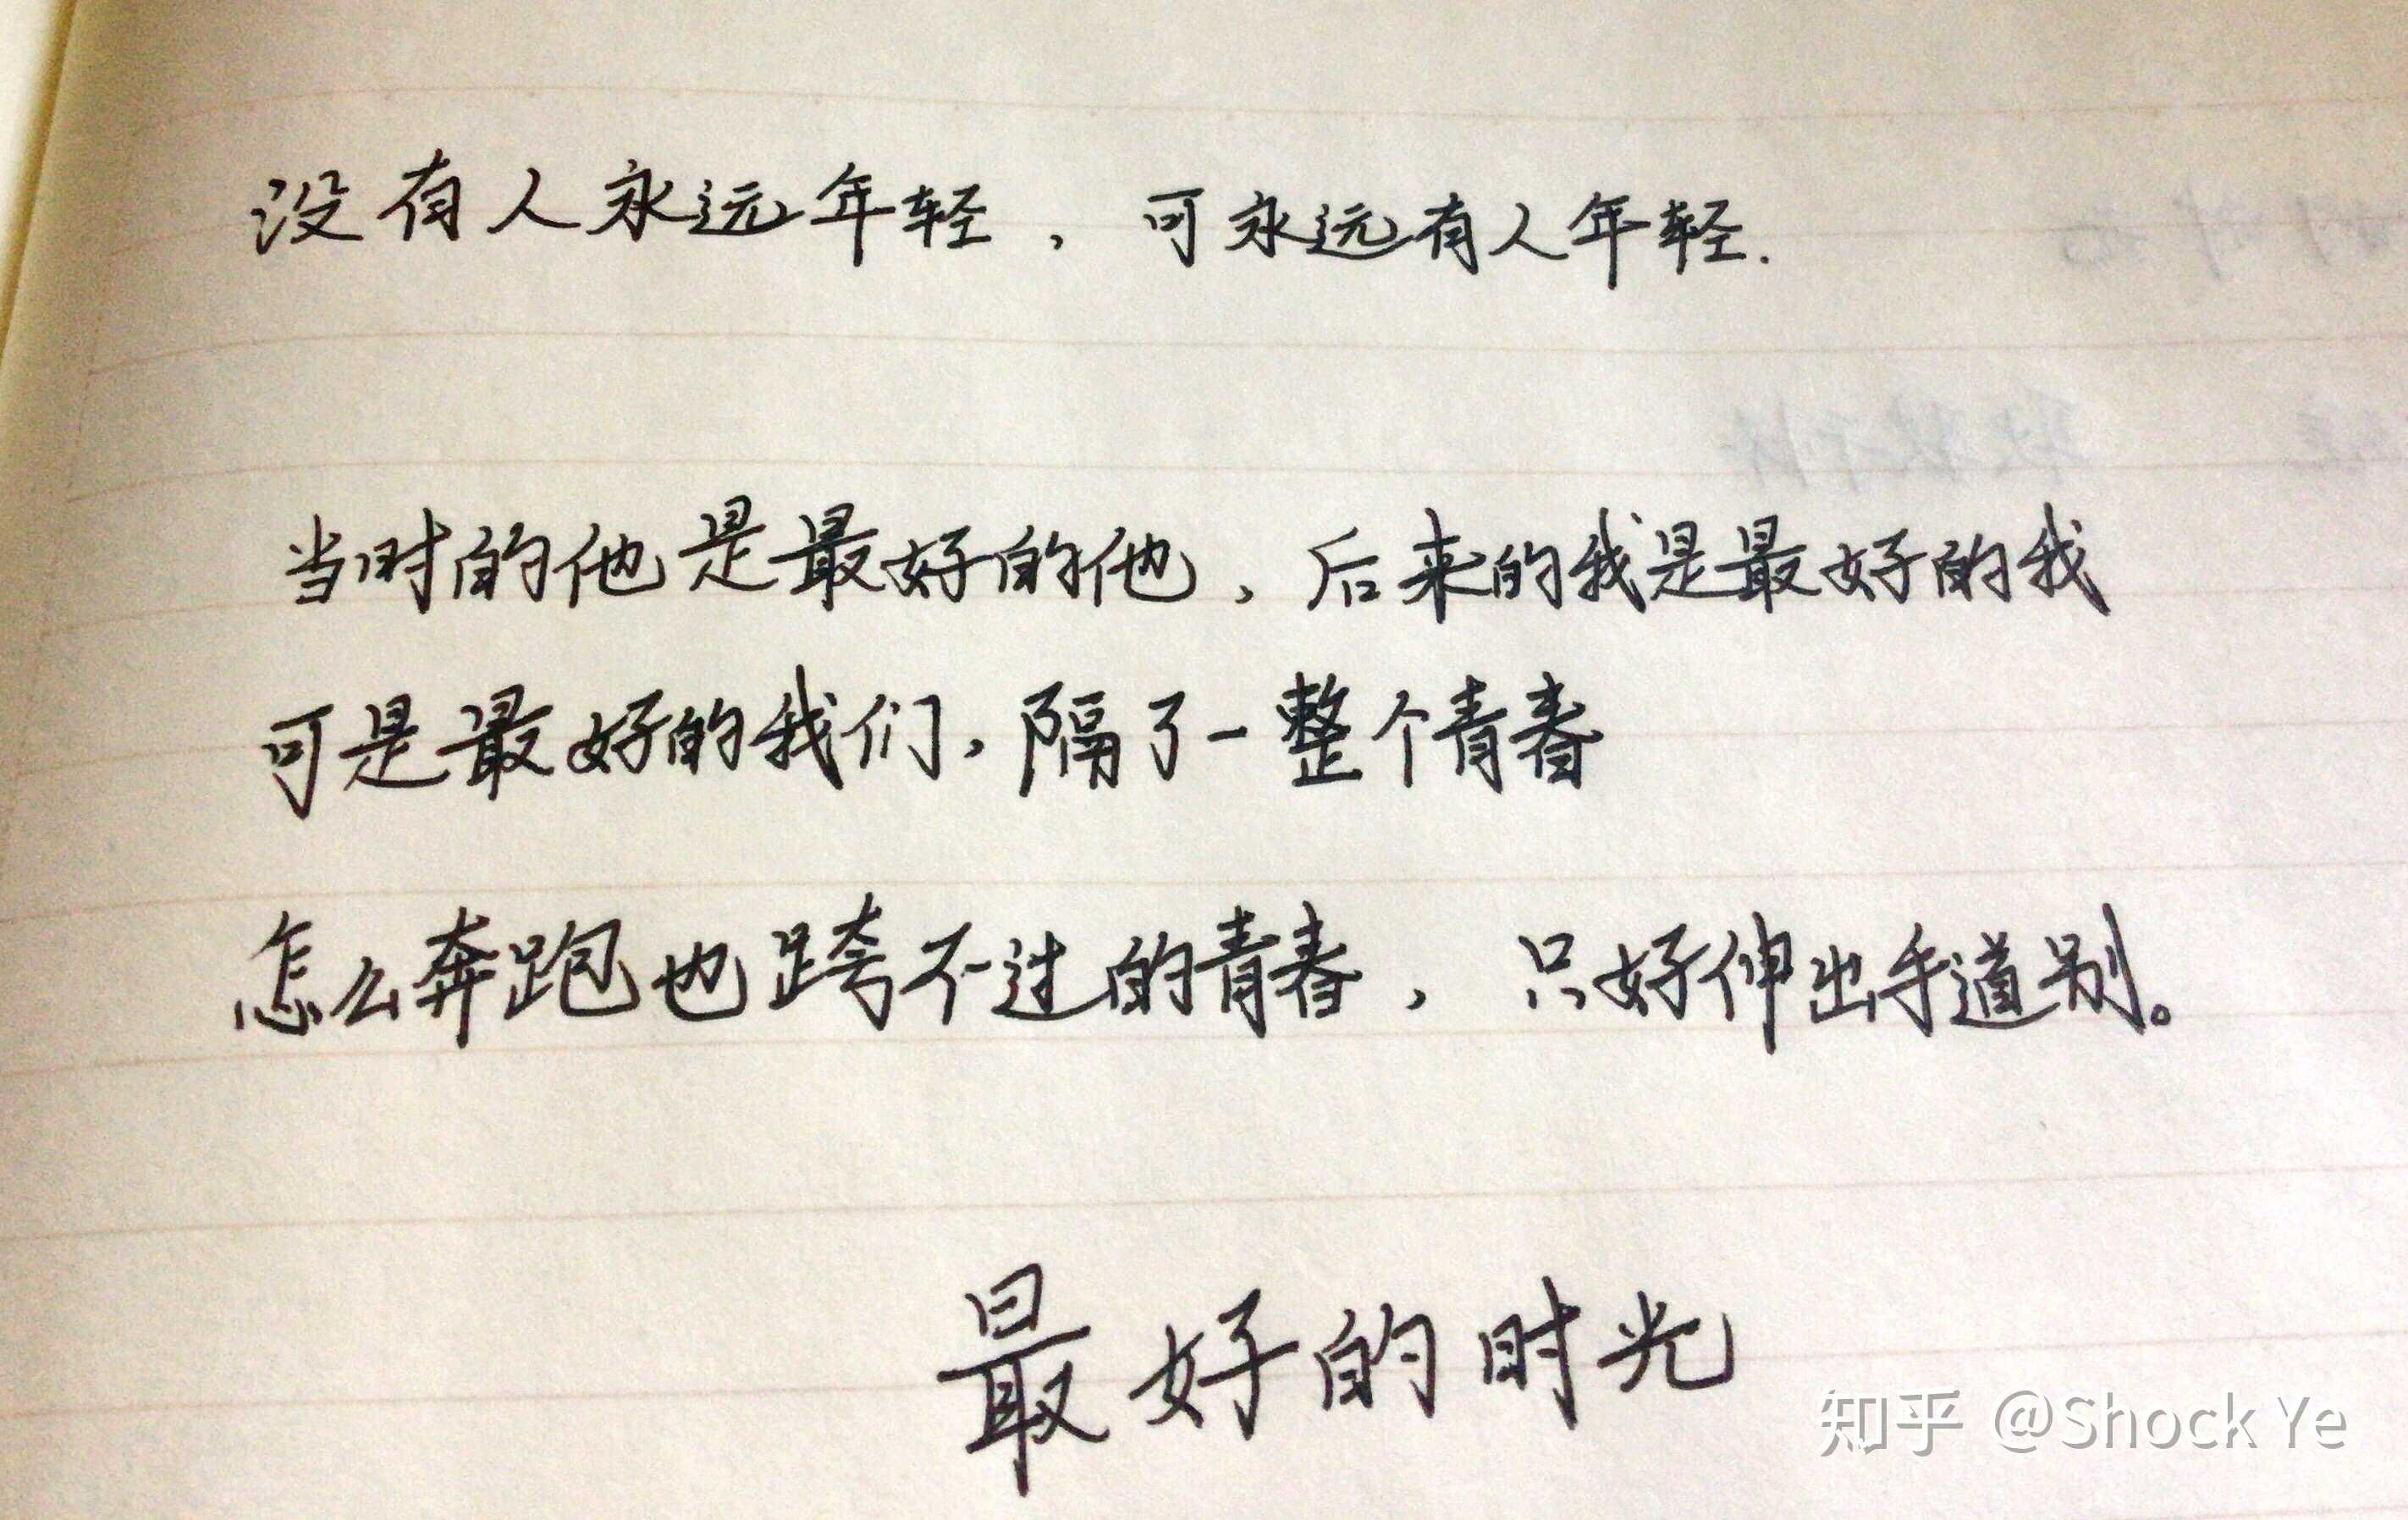 没有人永远年轻，可永远有人年轻.
当时的他是最好的他，后来的我是最好的我
可是最好的我们，隔了一整个青春
怎么奔跑也跨不过的青春，只好伸出手道别。
最好的时光
知乎 @Shock Ye